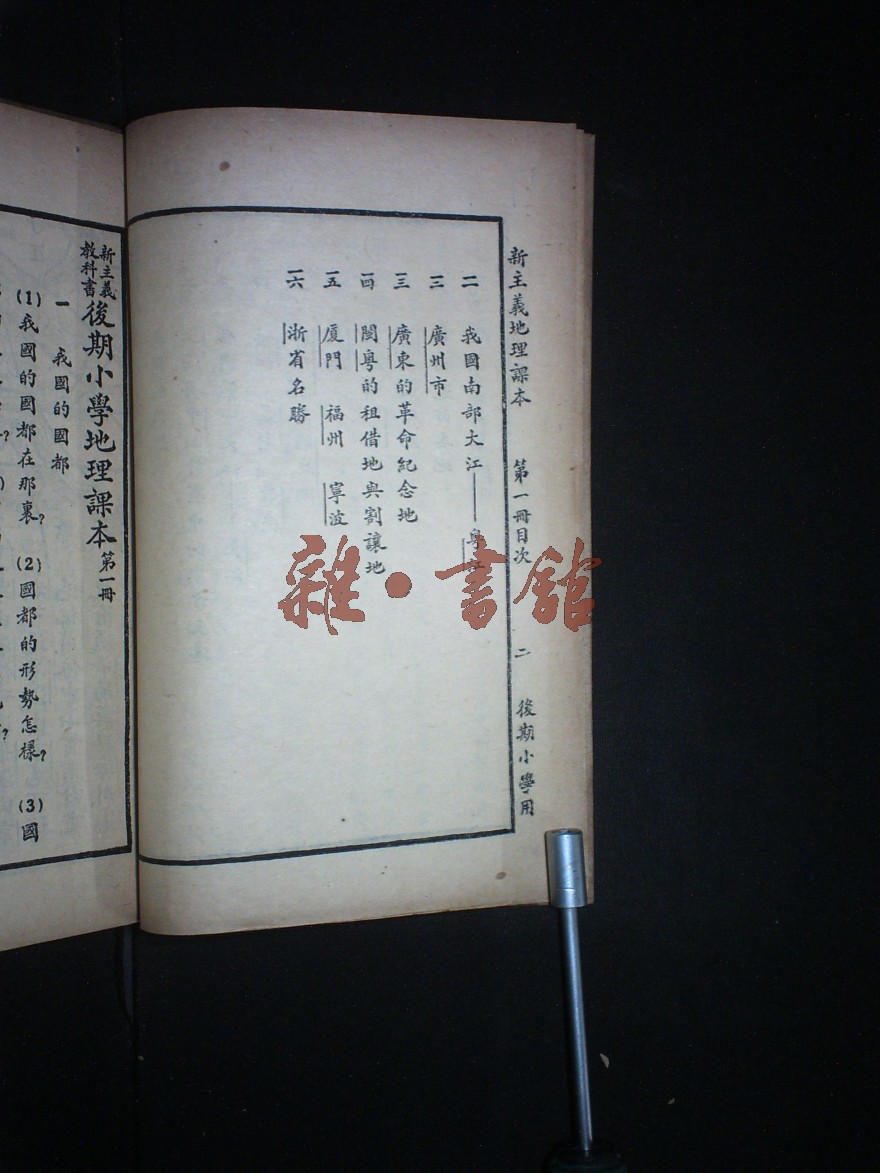 新主義地理課本 第一冊目次 二 後期小學用
一一 我國南部大江——粵江
一二 廣州市
一三 廣東的革命紀念地
一四 閩粵的租借地與割讓地
一五 廈門 福州 寧波
一六 浙省名勝
新主義教科書 後期小學地理課本 第一冊
一 我國的國都
(1)我國的國都在那裏? (2)國都的形勢怎樣? (3)國
雜·書館